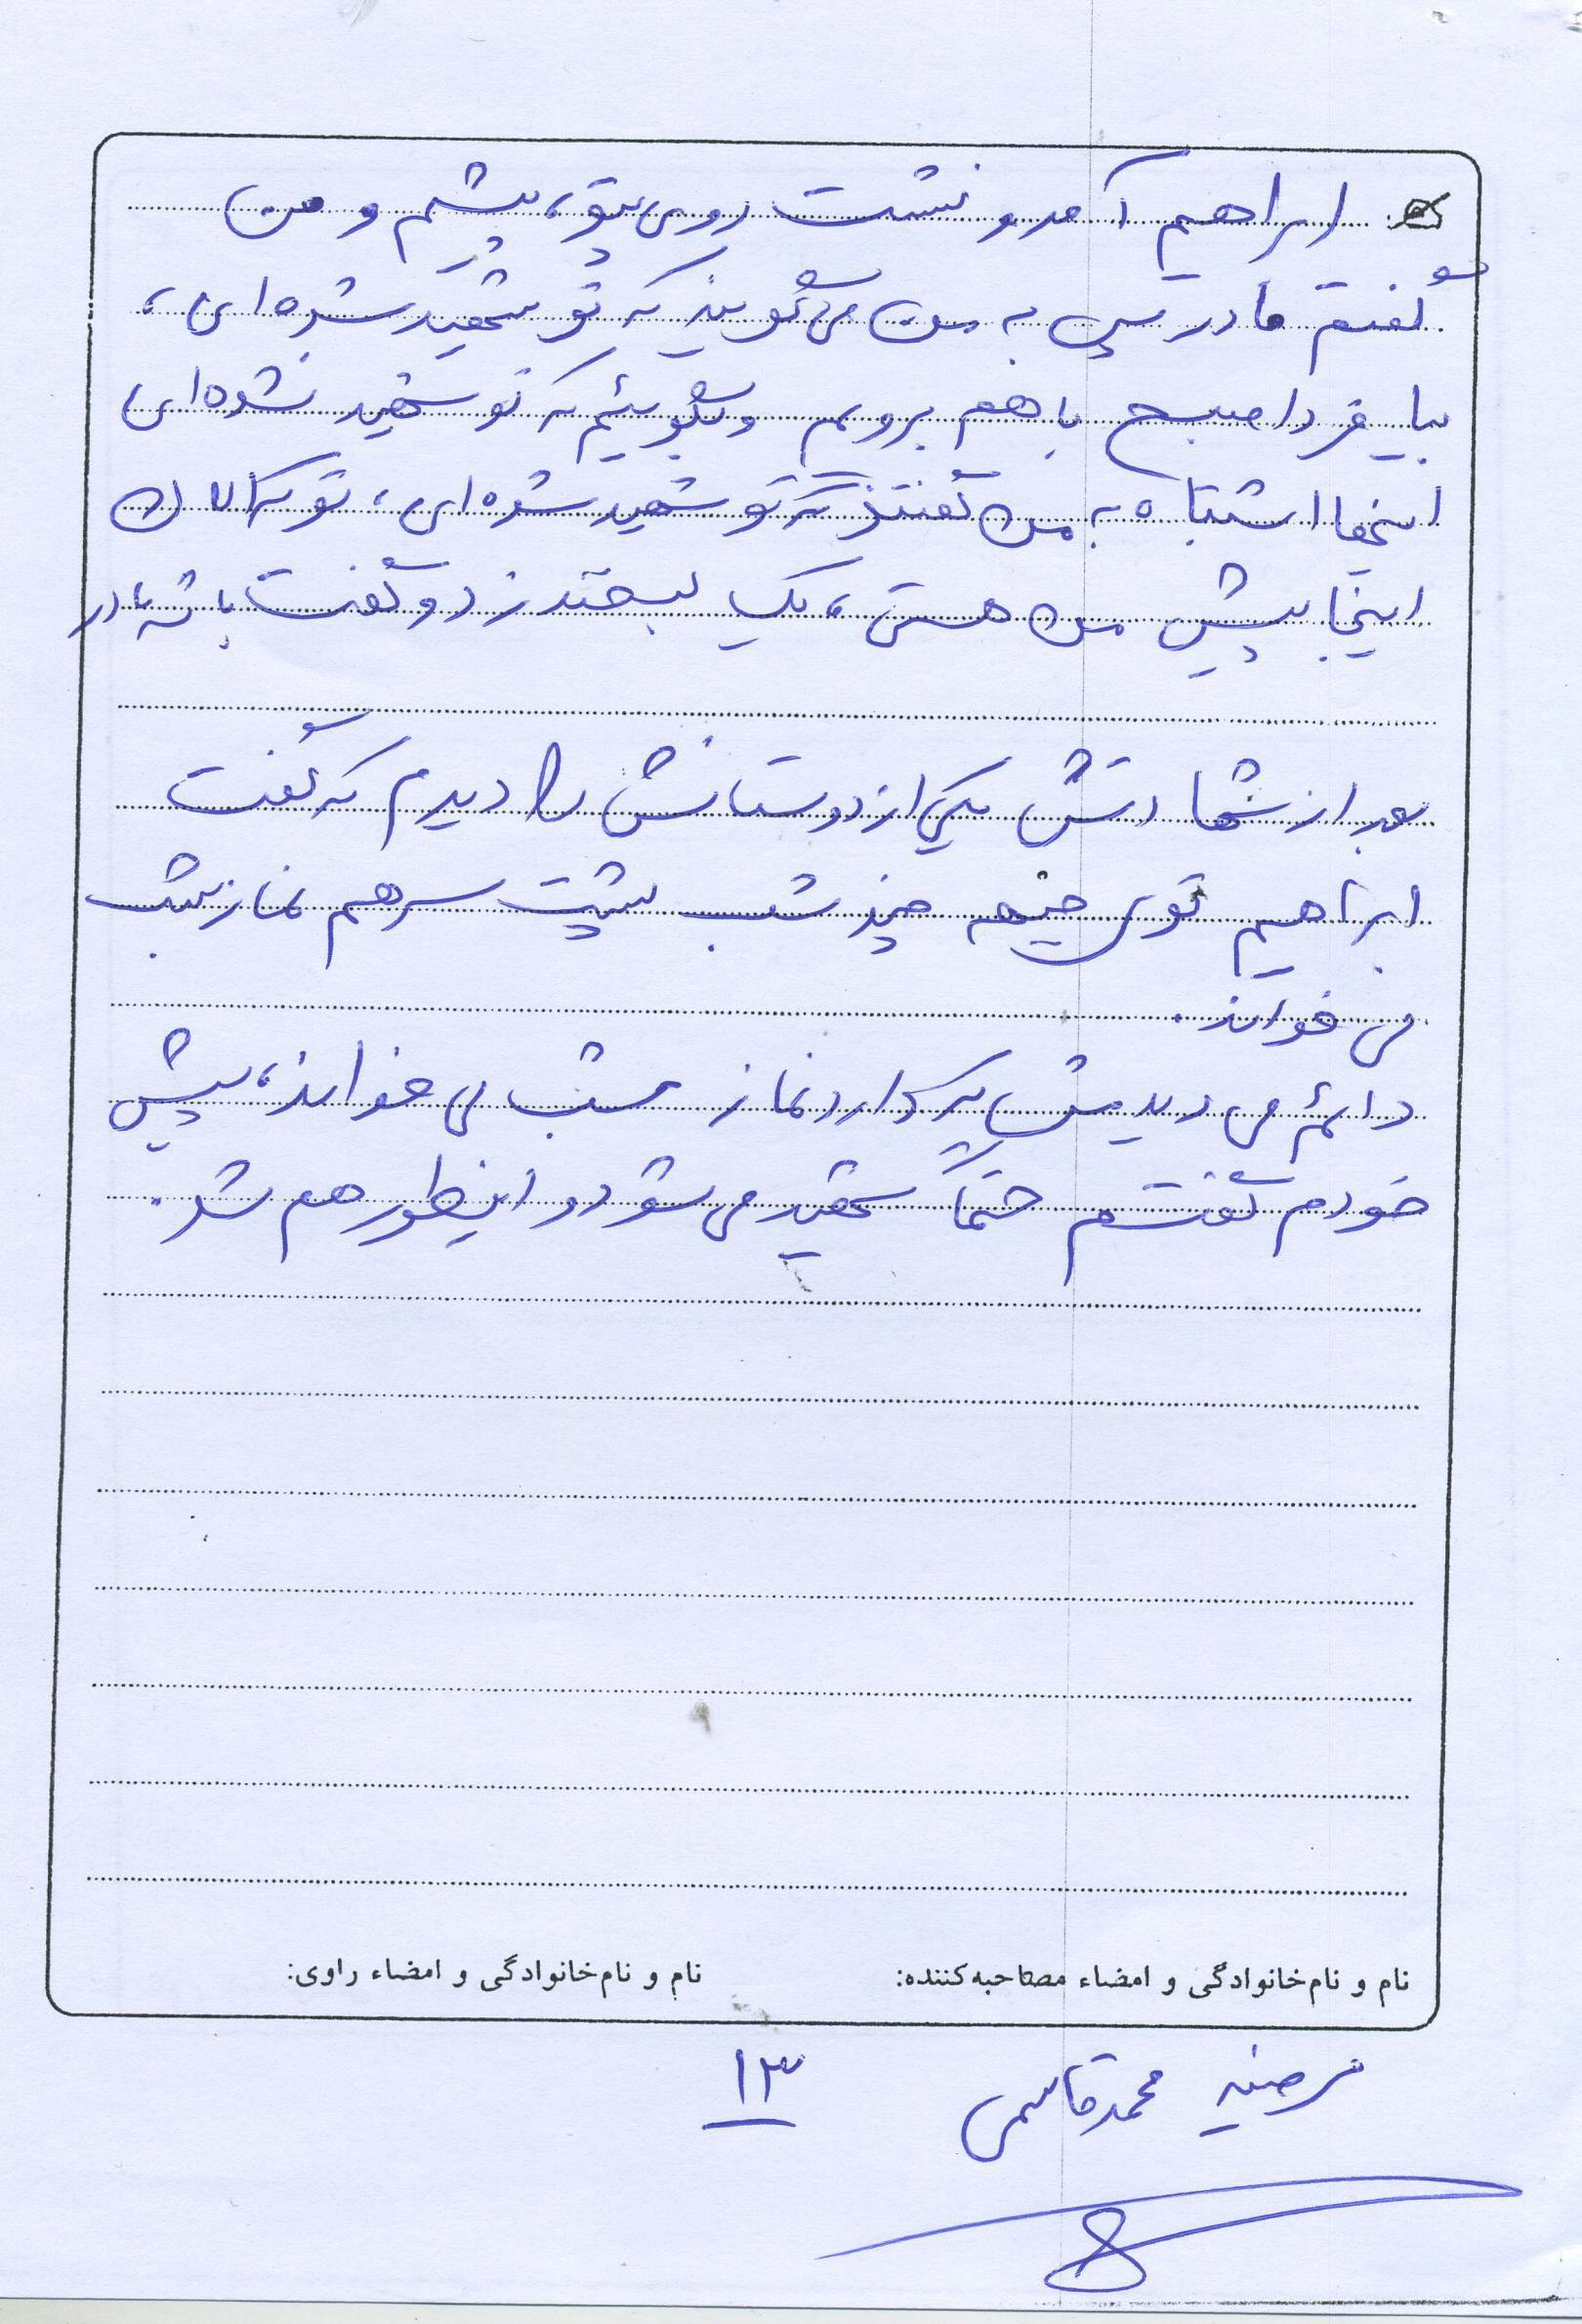 ابراهیم آمد و نشست روی پتو، پیشم و من
گفتم مادر پس به من می‌گویند که تو شهید شده‌ای،
بیا فردا صبح با هم برویم و بگوییم که تو شهید نشده‌ای
اینها اشتباه به من گفتند که تو شهید شده‌ای، تو که الان
اینجا پیش من هستی، یک لبخند زد و گفت باشه مادر
بعد از شهادتش یکی از دوستانش را دیدم که گفت
ابراهیم توی جبهه چند شب پشت سر هم نماز شب
می‌خواند.
دائم می‌دیدمش که دارد نماز شب می‌خواند، پیش
خودم گفتم حتماً شهید می‌شود و اینطور هم شد.
نام و نام‌خانوادگی و امضاء مصاحبه‌کننده: نام و نام‌خانوادگی و امضاء راوی:
مرضیه محمدقاسمی
۱۳